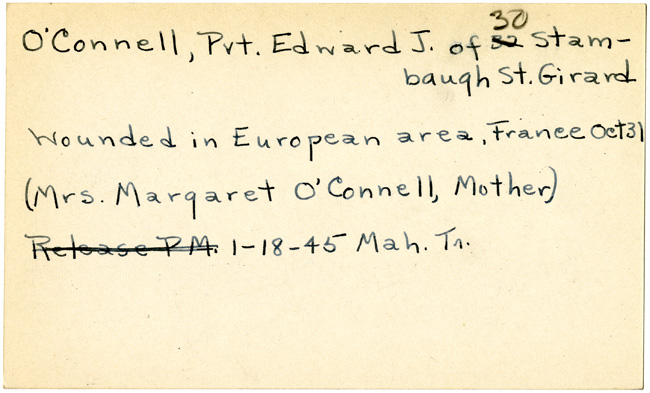 O'Connell, Pvt. Edward J. of 30 52 Stam-
baugh St. Girard
Wounded in European area, France Oct 31
(Mrs. Margaret O'Connell, Mother)
Release P.M. 1-18-45 Mah. Tr.